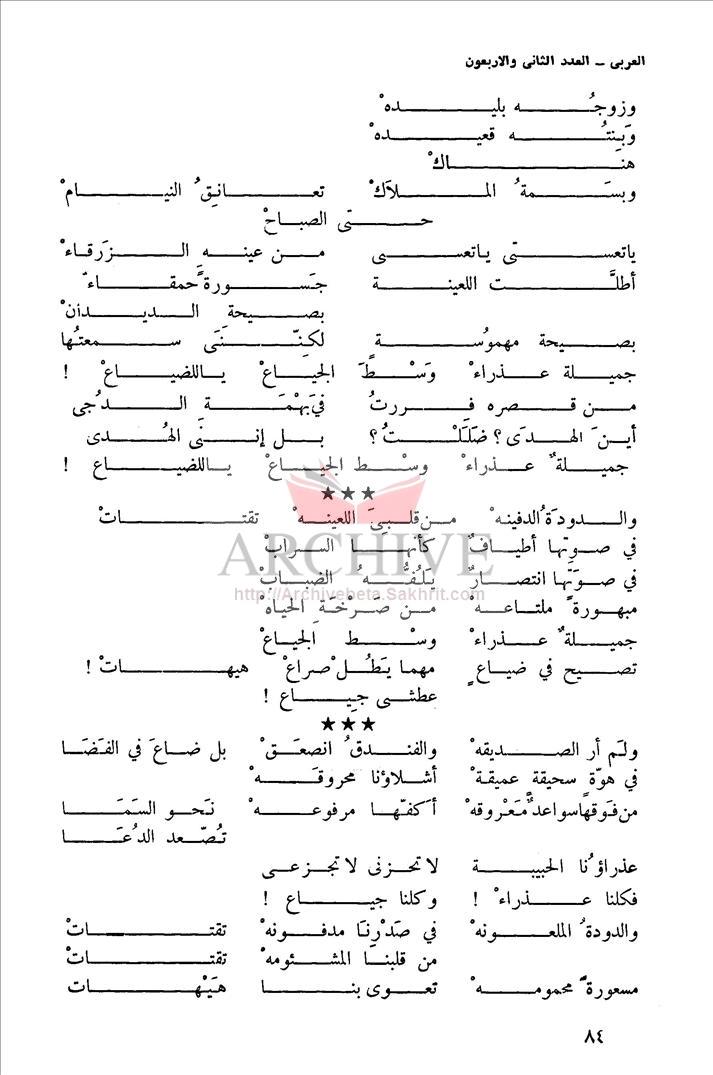 العربى ــ العدد الثانى والاربعون
وزوجُه بليدهْ
وَبِنتُه قعيدهْ
هناكْ
وبسَمةُ الملاَكْ تعانِقُ النيامْ
حتى الصباحْ
ياتعستى ياتعسى من عينه الزَرقاءْ
أطلَّت اللعينة جَسورةً حمقاءْ
بصيحةِ الديدانْ
بصيحة مهموسةٍ لكِنَّنى سمعتُها
جميلة عذراءْ وَسْطَ الجياعْ ياللضياعْ !
من قصره فررتُ فيَ بَهْمَة الدُجى
أينَ الهدَى ؟ ضَلَلْتُ ؟ بل إننى الهُدى
جميلةٌ عذراءْ وسْط الجياعْ ياللضياعْ !
★★★
والدودَةُ الدفينهْ من قلبىَ اللعينهْ تقتاتْ
ARCHIVE
في صوتها أطيافٌ كأنها السرابْ
في صوَتها انتصارٌ يَلُفُّهُ الضبابْ
http://Archivebeta.Sakhrit.com
مبهورةً ملتاعهْ من صَرْخَةِ الحياهْ
جميلةٌ عذراءْ وسْط الجياعْ
تصيح في ضياعٍ مهما يَطُلْ صراعْ هيهاتْ !
عطشى جياع !
★★★
ولَم أر الصديقهْ والفندقُ انصعَقْ بل ضاعَ في الفَضَا
في هوّة سحيقةٍ عميقةْ أشلاؤنا محروقَهْ
من فَوقها سواعدٌ مَعْروقهْ أكفّها مرفوعهْ نَحو السمَا
تُصّعد الدعَا
عذراؤنا الحبيبة لا تحزنى لا تجزعى
فكلنا عذراءْ ! وكلنا جياع !
والدودةُ الملعونهْ في صَدْرنَا مدفونهْ تقتاتْ
من قلبنا المشئومهْ تقتاتْ
مسعورةً محمومهْ تعوى بنا هَيْهاتْ
٨٤